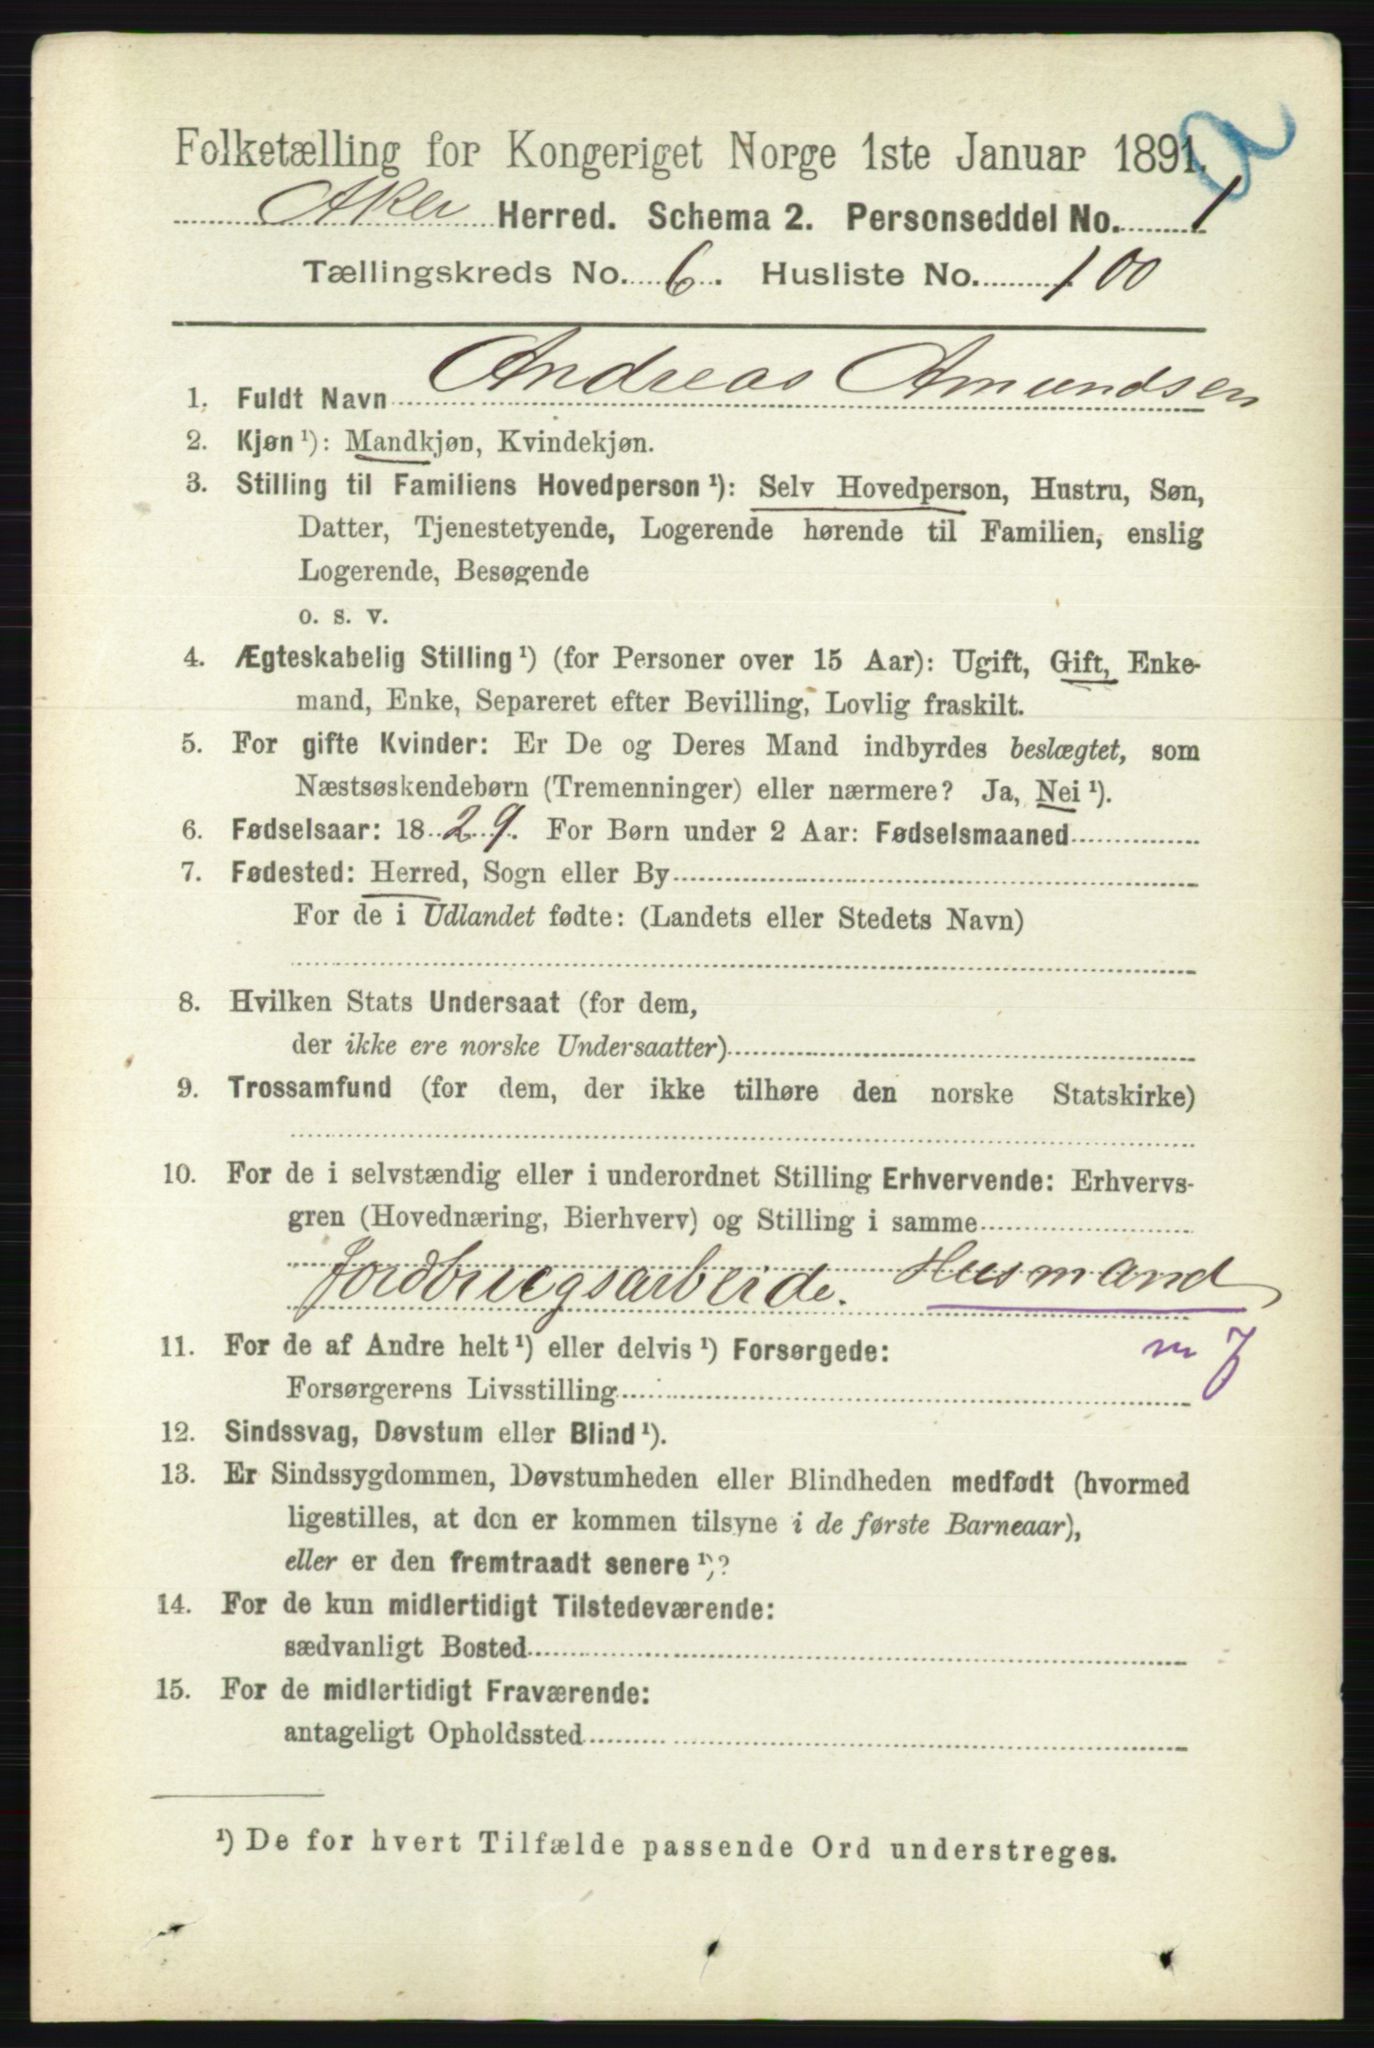 Folketælling for Kongeriget Norge 1ste Januar 1891.
Aker Herred. Schema 2. Personseddel No. 1
Tællingskreds No. 6. Husliste No. 100
1. Fuldt Navn Andreas Amundsen
2. Kjøn¹): Mandkjøn, Kvindekjøn.
3. Stilling til Familiens Hovedperson¹): Selv Hovedperson, Hustru, Søn,
Datter, Tjenestetyende, Logerende hørende til Familien, enslig
Logerende, Besøgende
o. s. v.
4. Ægteskabelig Stilling¹) (for Personer over 15 Aar): Ugift, Gift, Enke-
mand, Enke, Separeret efter Bevilling, Lovlig fraskilt.
5. For gifte Kvinder: Er De og Deres Mand indbyrdes beslægtet, som
Næstsøskendebørn (Tremenninger) eller nærmere? Ja, Nei¹).
6. Fødselsaar: 1829. For Børn under 2 Aar: Fødselsmaaned
7. Fødested: Herred, Sogn eller By
For de i Udlandet fødte: (Landets eller Stedets Navn)
8. Hvilken Stats Undersaat (for dem,
der ikke ere norske Undersaatter)
9. Trossamfund (for dem, der ikke tilhøre den norske Statskirke)
10. For de i selvstændig eller i underordnet Stilling Erhvervende: Erhvervs-
gren (Hovednæring, Bierhverv) og Stilling i samme
Jordbrugsarbeide. Husmand
11. For de af Andre helt¹) eller delvis¹) Forsørgede: m J
Forsørgerens Livsstilling
12. Sindssvag, Døvstum eller Blind¹).
13. Er Sindssygdommen, Døvstumheden eller Blindheden medfødt (hvormed
ligestilles, at den er kommen tilsyne i de første Barneaar),
eller er den fremtraadt senere¹)?
14. For de kun midlertidigt Tilstedeværende:
sædvanligt Bosted
15. For de midlertidigt Fraværende:
antageligt Opholdssted
¹) De for hvert Tilfælde passende Ord understreges.